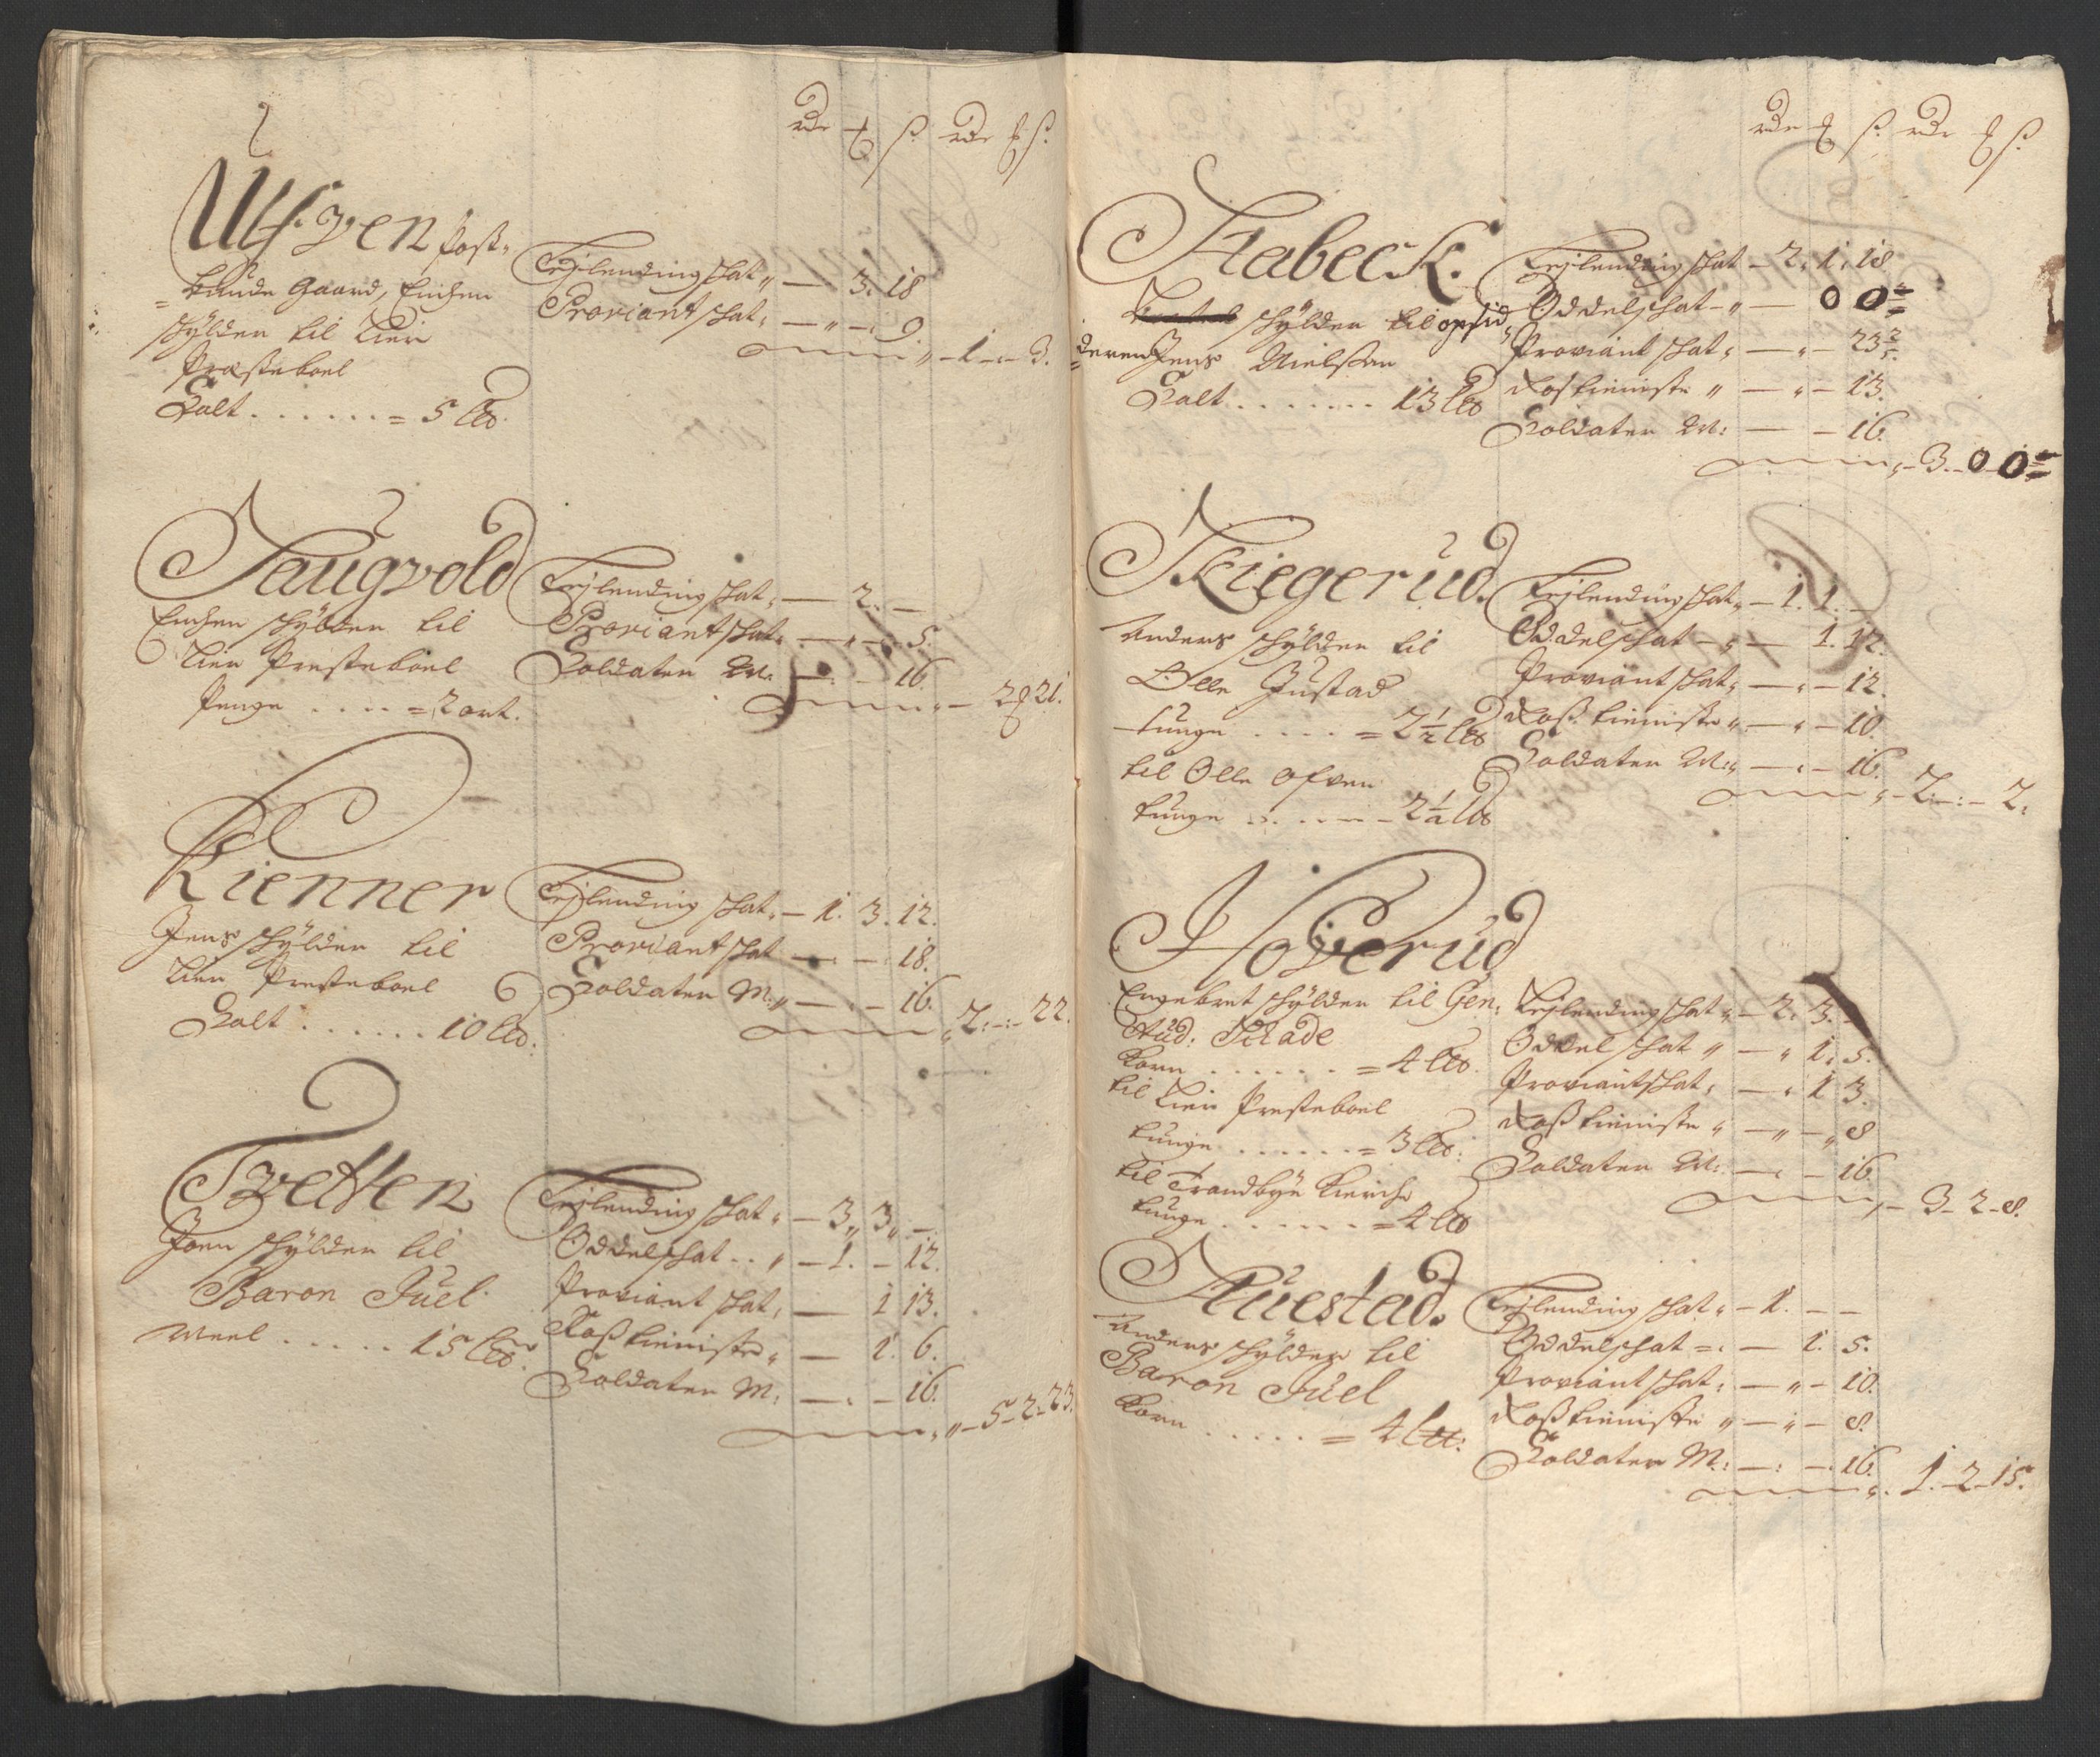 rdr ß rdr ß.
Ulfven Post-
bunde Gaard, Enchen
schylder til Lier
Præsteboel
Salt . . . . . . = 5 Lb.
Leylending schat „ — 3. 18
Proviant schat „ — „ — 9
„ — 1 — 3.
Taugvold
Enchen schylder til
Lier Præsteboel
Penge . . . . = 2 ort.
Leylending schat „ — 2. —
Proviant schat „ — „ — 5.
Soldater M: — — 16.
— 2 21.
Kienner
Jens schylder til
Lier Præsteboel
Salt . . . . . . 10 Lb:
Leylending schat „ — 1. 3. 12.
Proviant schat — — 18.
Soldater M: „ — — 16.
„ 2: — : — 22.
Tvetten
Joen schylder til
Baron Juel
Meel . . . . . 15 Lb.
Leylending schat „ — 3 „ 3 „ —
Oddelschat . . „ — 1. — 12.
Proviant schat, — 1 13.
Rostieniste „ — 1. 6.
Soldater M: — : — 16.
„ — 5 — 2 — 23.
rdr ß. rdr ß.
Stabeck.
schylder til opsid
deren Jens Nielssen
Salt . . . . . . 13 Lb
Leylending schat — 2. 1. 18
Oddelschat — „ — 0 0 =
Proviant schat „ — „ — 23
Rostieniste „ — „ — 13.
Soldater M: — — 16.
— 3. — 0 0 =
Skiegerud.
Anders schylder til
Olle Justad
tunge . . . . = 2½ Lb
til Olle Ofven
tunge . . . . — 2½ Lb
Leylending schat „ — 1. 1. —
Oddelschat — „ — 1. 12.
Proviant schat „ — „ — 12.
Rostieniste „ — „ — 10.
Soldater M: „ — „ — 16.
„ — 2: — : — 2.
Hoverud
Engebret schylder til Gen:
Stud: Schade
Korn . . . . . . = 4 Lb.
til Lier Præsteboel
tunge . . . . . . = 3 Lb:
til Trandbye Kierche
tunge . . . . . . = 4 Lb
Leylending schat „ — 2. 3. —
Oddel schat „ — „ 1. 5.
Proviantschat, — „ 1 3.
Rostieniste „ — „ — „ 8
Soldater M: — „ — 16.
— 3 — 2 — 8.
Huestad.
Anders schylder til
Baron Juel
Korn . . . . . = 4 Lb:
Leylending schat „ — 1. — —
Oddelschat = „ — 1. 5.
Proviant schat „ — „ — 10.
Rostieniste „ — „ — 8.
Soldater M: — : — 16.
„ 1. — 2 — 15.